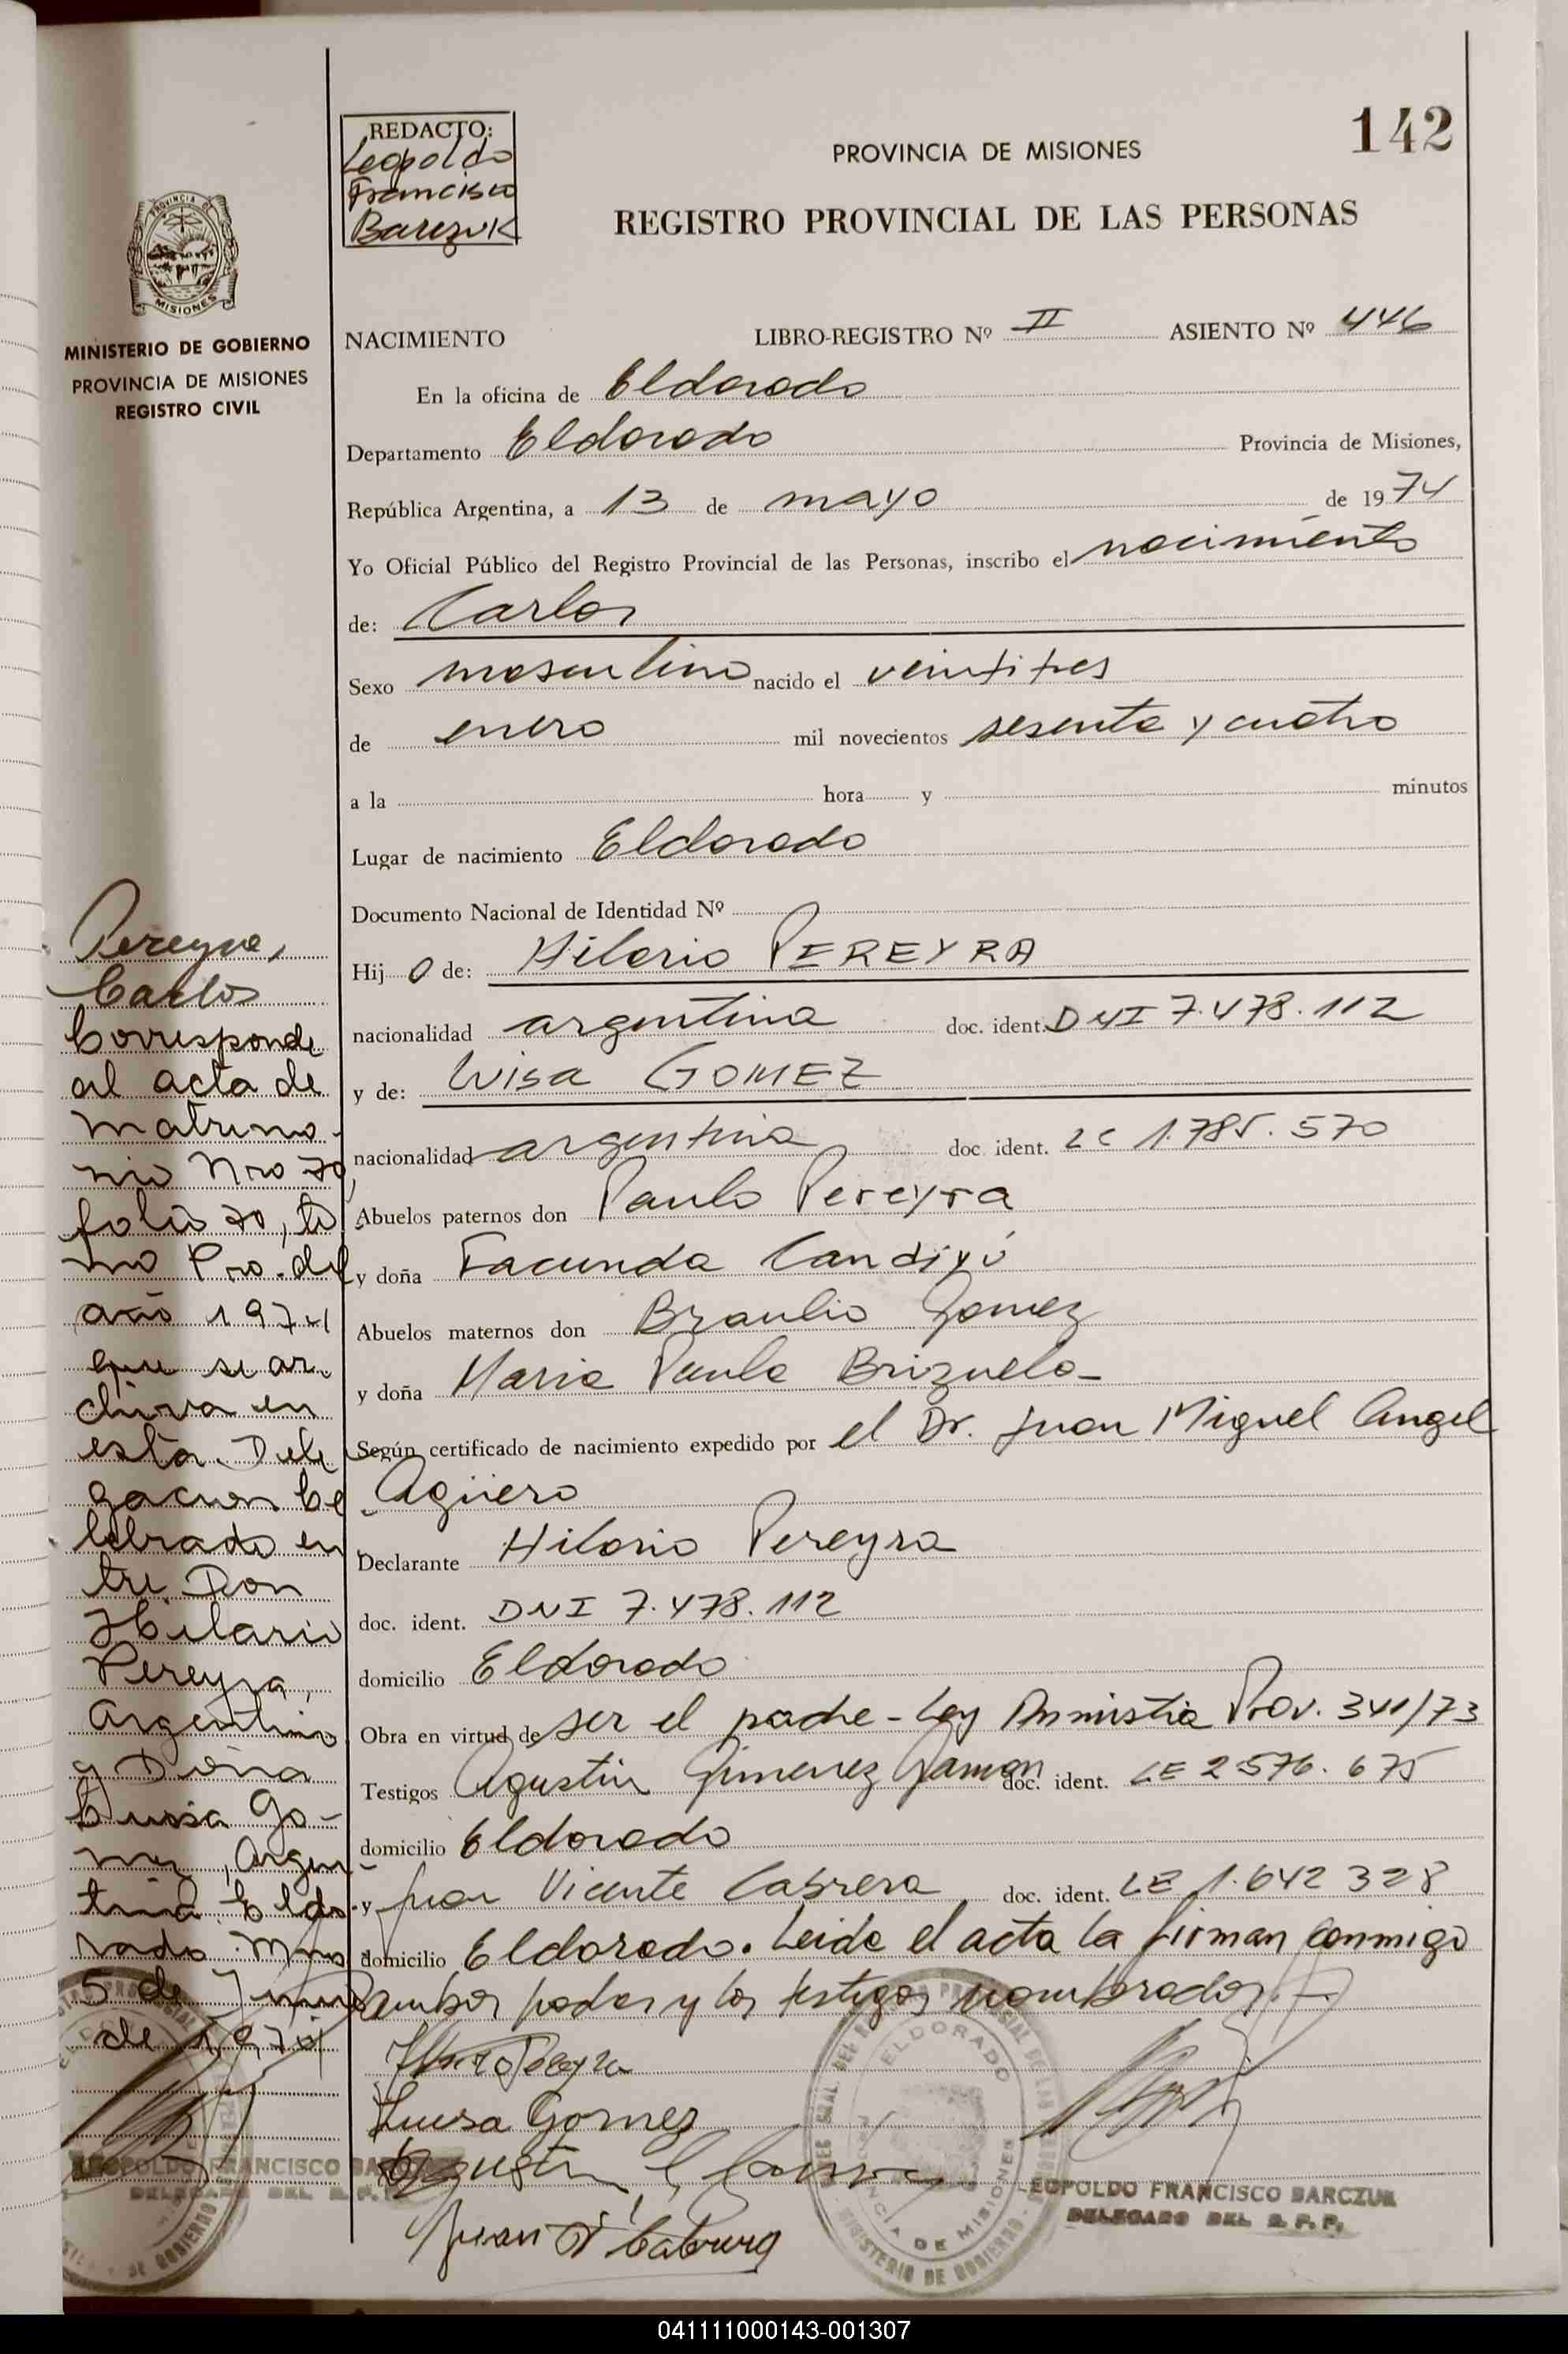 142
REDACTO:
Leopoldo
Francisco
Barczuk
PROVINCIA DE MISIONES
REGISTRO PROVINCIAL DE LAS PERSONAS
PROVINCIA DE
MISIONES
MINISTERIO DE GOBIERNO
PROVINCIA DE MISIONES
REGISTRO CIVIL
NACIMIENTO LIBRO-REGISTRO Nº II ASIENTO Nº 446
En la oficina de Eldorado
Departamento Eldorado Provincia de Misiones,
República Argentina, a 13 de mayo de 1974
Yo Oficial Público del Registro Provincial de las Personas, inscribo el nacimiento
de: Carlos
Sexo masculino nacido el veintitres
de enero mil novecientos sesenta y cuatro
a la hora y minutos
Lugar de nacimiento Eldorado
Documento Nacional de Identidad Nº
Hijo de: Hilario PEREYRA
nacionalidad argentina doc. ident. DNI 7.478.112
y de: Luisa GOMEZ
nacionalidad argentina doc. ident. LC 1.785.570
Abuelos paternos don Paulo Pereyra
y doña Facunda Candiyú
Abuelos maternos don Braulio Gomez
y doña Maria Paula Brizuela
Según certificado de nacimiento expedido por el Dr. Juan Miguel Angel
Agüero
Declarante Hilario Pereyra
doc. ident. DNI 7.478.112
domicilio Eldorado
Obra en virtud de ser el padre - Ley Amnistia Prov. 341/73
Testigos Agustin Gimenez Gamon doc. ident. LE 2576.675
domicilio Eldorado
y Juan Vicente Cabrera doc. ident. LE 1.642 328
domicilio Eldorado. Leida el acta la firman conmigo
ambos padres y los testigos nombrados.
Luisa Gomez
Agustin
Juan V. Cabrera
LEOPOLDO FRANCISCO BARCZUK
DELEGADO DEL R. P. P.
ELDORADO
Pereyra,
Carlos
Corresponde
al acta de
matrimo-
nio Nro 70,
folio 70, to
mo Pro. del
año 1974
que se ar
chiva en
esta Dele
gacion Ce
lebrado en
tre Don
Hilario
Pereyra,
Argentino
y Doña
Luisa Go-
mez, Argen-
tina. Eldo-
rado. Mnes
5 de Junio
de 1974
LEOPOLDO FRANCISCO
DELEGADO DEL R. P. P.
041111000143-001307